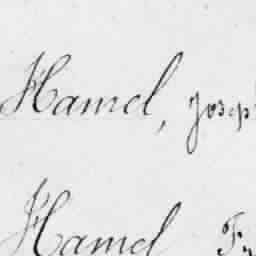 Hamel, Josep
Hamel Fr